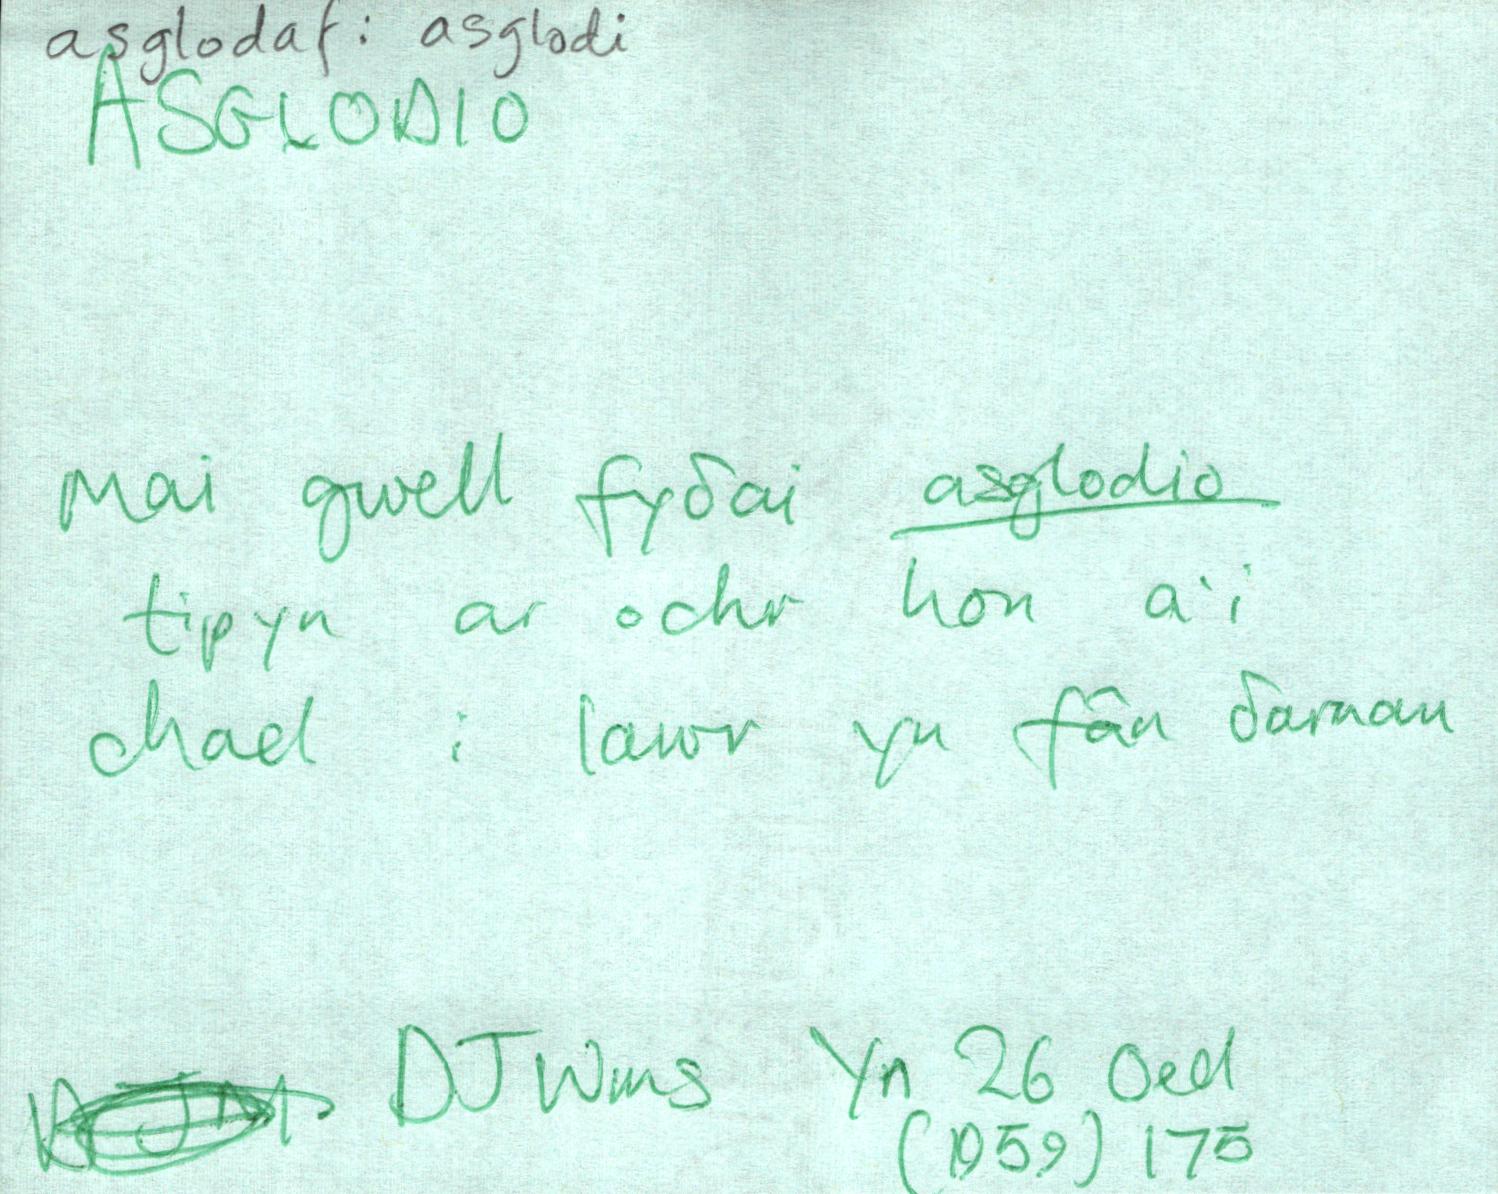 asglodaf: asglodi
ASGLODIO
Mai gwell fyðai asglodio
tipyn ar ochr hon a'i
chael i lawr yn fân ðarnau
DJ Wms Yn 26 Oed
(1959) 175